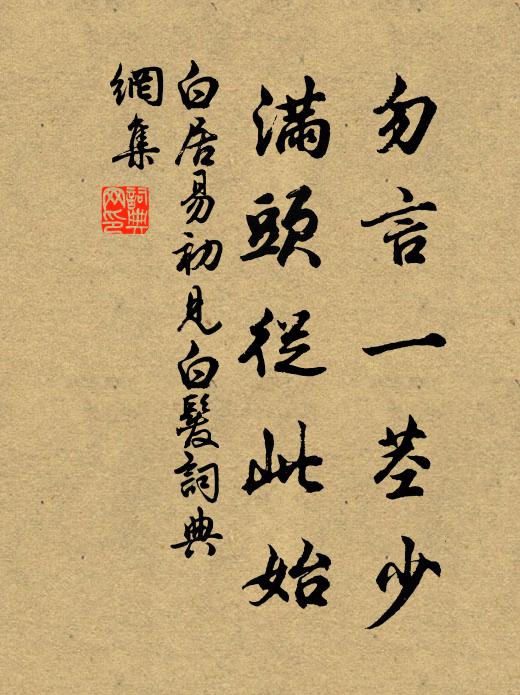 勿言一茎少
滿頭從此始
白居易初見白髮詞典
網集
詞典
网印